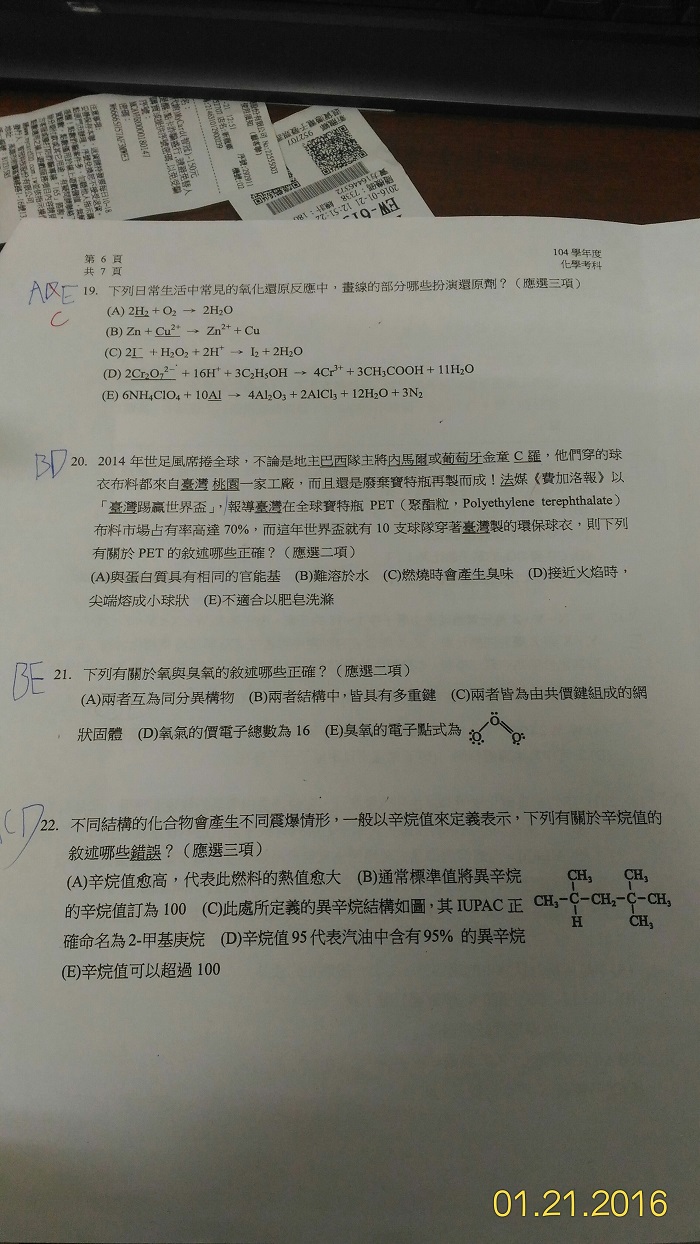 EW-61
952707
第 6 頁
共 7 頁
104 學年度
化學考科
A
E
C
19. 下列日常生活中常見的氧化還原反應中，畫線的部分哪些扮演還原劑？（應選三項）
(A) 2H₂ + O₂ → 2H₂O
(B) Zn + Cu²⁺ → Zn²⁺ + Cu
(C) 2I⁻ + H₂O₂ + 2H⁺ → I₂ + 2H₂O
(D) 2Cr₂O₇²⁻ + 16H⁺ + 3C₂H₅OH → 4Cr³⁺ + 3CH₃COOH + 11H₂O
(E) 6NH₄ClO₄ + 10Al → 4Al₂O₃ + 2AlCl₃ + 12H₂O + 3N₂
BD
20. 2014 年世足風席捲全球，不論是地主巴西隊主將內馬爾或葡萄牙金童 C 羅，他們穿的球
衣布料都來自臺灣 桃園一家工廠，而且還是廢棄寶特瓶再製而成！法媒《費加洛報》以
「臺灣踢贏世界盃」，報導臺灣在全球寶特瓶 PET（聚酯粒，Polyethylene terephthalate）
布料市場占有率高達 70%，而這年世界盃就有 10 支球隊穿著臺灣製的環保球衣，則下列
有關於 PET 的敘述哪些正確？（應選二項）
(A)與蛋白質具有相同的官能基 (B)難溶於水 (C)燃燒時會產生臭味 (D)接近火焰時，
尖端熔成小球狀 (E)不適合以肥皂洗滌
BE
21. 下列有關於氧與臭氧的敘述哪些正確？（應選二項）
(A)兩者互為同分異構物 (B)兩者結構中，皆具有多重鍵 (C)兩者皆為由共價鍵組成的網
狀固體 (D)氧氣的價電子總數為 16 (E)臭氧的電子點式為
O
O O
CD
22. 不同結構的化合物會產生不同震爆情形，一般以辛烷值來定義表示，下列有關於辛烷值的
敘述哪些錯誤？（應選三項）
(A)辛烷值愈高，代表此燃料的熱值愈大 (B)通常標準值將異辛烷
的辛烷值訂為 100 (C)此處所定義的異辛烷結構如圖，其 IUPAC 正
確命名為 2-甲基庚烷 (D)辛烷值 95 代表汽油中含有 95% 的異辛烷
(E)辛烷值可以超過 100
CH₃ CH₃
CH₃-C-CH₂-C-CH₃
H CH₃
01.21.2016